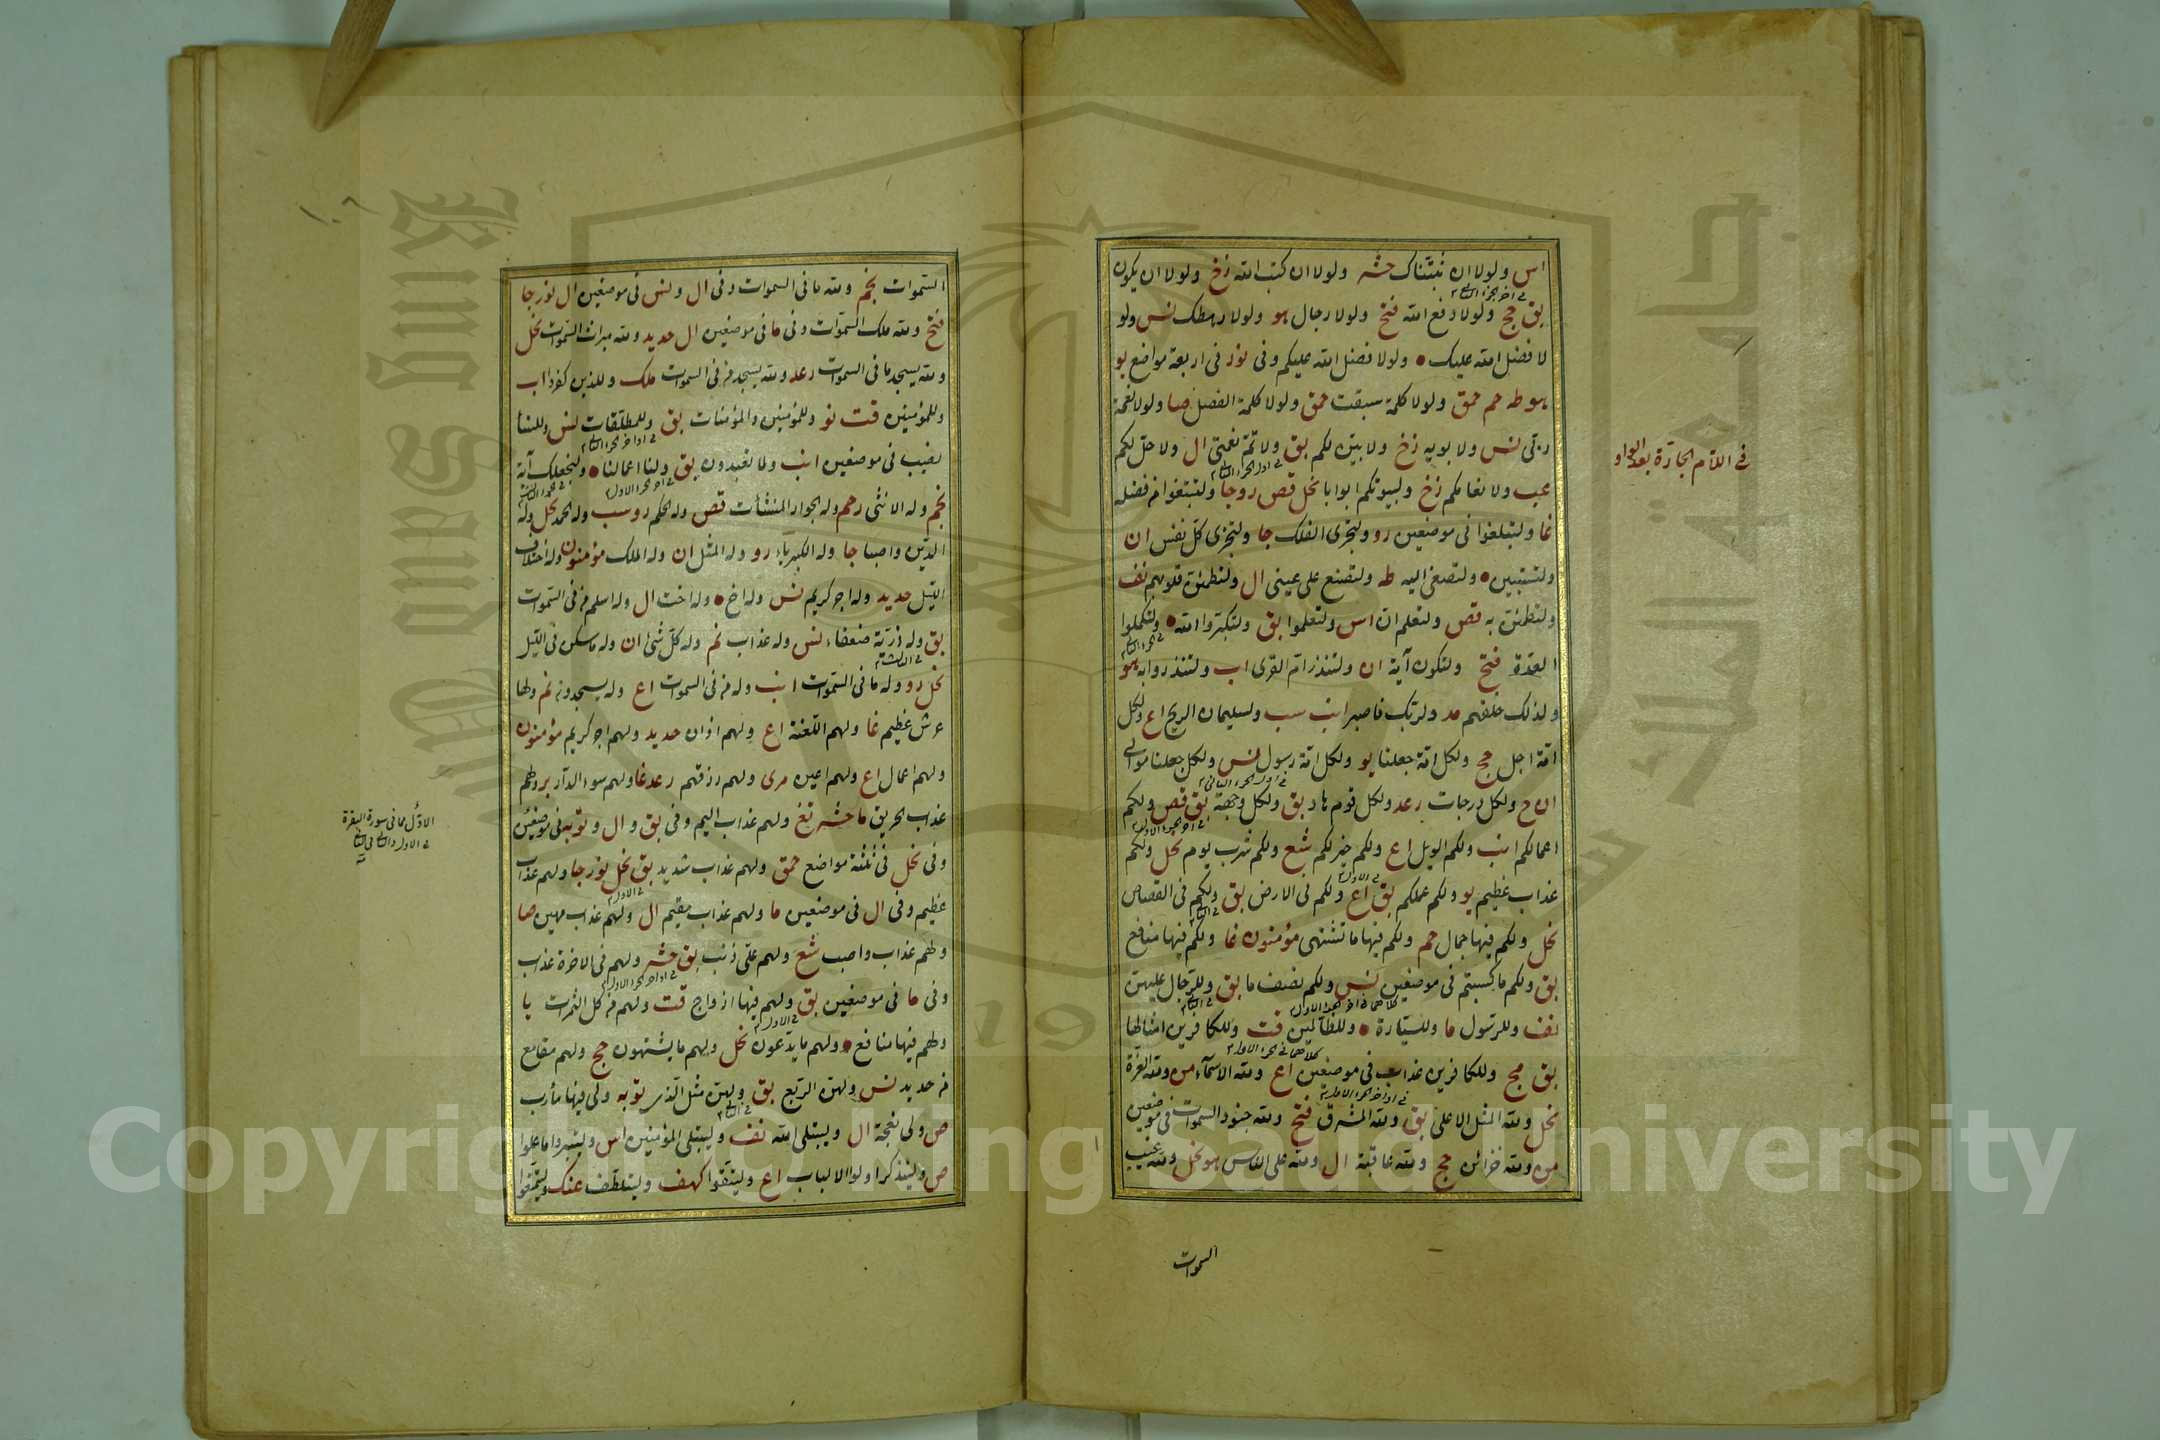 اس ولولا ان ثبتناك حشر ولولا ان كتب الله زخ ولولا ان يكون
بق حج ولولا دفع الله فتح ولولا رجال هو ولولا رهطك نس ولو
لا فضل الله عليك ولولا فضل الله عليكم وفى نور فى اربعة مواضع يو
هو طه حم حمق ولولا كلمة سبقت حمق ولولا كلمة الفصل صا ولولا نعمة
ربى نس ولا بويه زخ ولا بين لكم بق ولا تم نعمتى ال ولا حل لكم
عب ولا نعامكم زخ ولبيوتهم ابوابا نحل قص رو جا ولتبتغوا من فضله
غا ولتبلغوا فى موضعين رو ولتجرى الفلك جا ولتجزى كل نفس ان
ولتستبين ولتصغى اليه طه ولتصنع على عينى ال ولتطمئن قلوبهم نف
ولتطمئن به قص ولتعلم ان اس ولتعلموا بق ولتكبروا الله ولتكملوا
العدة فتح ولتكون آية ان ولتنذر ام القرى اب ولتنذروا به هو
ولذلك خلقهم مد ولربك فاصبر انب سب ولسليمان الريح اع ولكل
امة اجل حج ولكل امة جعلنا يو ولكل امة رسول نس ولكل جعلنا موالى
ان ح ولكل درجات رعد ولكل قوم هاد بق ولكل وجهة بق قص ولكم
اعمالكم انب ولكم الويل اع ولكم خير لكم شع ولكم شرب يوم نحل ولكم
عذاب عظيم يو ولكم عملكم بق اع ولكم فى الارض بق ولكم فى القصاص
نحل ولكم فيها جمال حم ولكم فيها ما تشتهى مؤمنون غا ولكم فيها منافع
بق ولكم ما كسبتم فى موضعين نس ولكم نصف ما بق وللرجال عليهن
نف وللرسول ما وللسيارة وللظالمين قت وللكافرين امثالها
بق مج وللكافرين عذاب فى موضعين اع ولله الاسماء من ولله العزة
نحل ولله المثل الاعلى بق ولله المشرق فتح ولله جنود السموات فى موضعين
من ولله خزائن حج ولله عاقبة ال ولله على الناس هو نحل ولله غيب
السموات
فى اللام الجارة بعد الواو
السموات نجم ولله ما فى السموات وفى ال ونس فى موضعين ال نور جا
فتح ولله ملك السموات وفى ما فى موضعين ال حديد ولله ميراث السموات نحل
ولله يسجد ما فى السموات رعد ولله يسجد من فى السموات ملك وللذين كفروا اب
وللمؤمنين قت نو وللمؤمنين والمؤمنات بق وللمطلقات نس وللنساء
نصيب فى موضعين انب ولما تعبدون بق ولنا اعمالنا ولنجعلك آية
نجم وله الانثى رحم وله الجوار المنشآت قص وله الحكم رو سب وله الحمد نحل وله
الدين واصبا جا وله الكبرياء رو وله المثل ان وله الملك مؤمنون وله اختلاف
الليل حديد وله اجر كريم نس وله اخ وله اخت ال وله اسلم من فى السموات
بق وله ذرية ضعفاء نس وله عذاب نم وله كل شئ ان وله ما سكن فى الليل
نحل رو وله ما فى السموات انب وله من فى السموات اع وله يسجدون نم ولها
عرش عظيم غا ولهم اللعنة اع ولهم اذان حديد ولهم اجر كريم مؤمنون
ولهم اعمال اع ولهم اعين مرى ولهم رزقهم رعد غا ولهم سوء الدار بر ولهم
عذاب الحريق ما حشر تغ ولهم عذاب اليم وفى بق و ال و توبه فى موضعين
وفى نحل فى ثلثة مواضع حمق ولهم عذاب شديد بق نحل نور جا ولهم عذاب
عظيم وفى ال فى موضعين ما ولهم عذاب مقيم ال ولهم عذاب مهين صا
ولهم عذاب واصب شع ولهم على ذنب بق حشر ولهم فى الاخرة عذاب
وفى ما فى موضعين بق ولهم فيها ازواج قت ولهم من كل الثمرات يا
ولهم فيها منافع ولهم ما يدعون نحل ولهم ما يشتهون حج ولهم مقامع
من حديد نس ولهن الربع بق ولهن مثل الذى توبه ولى فيها مآرب
ص ولى نعجة ال وليبتلى الله نف وليبتلى المؤمنين اس وليتبروا ما علوا
ص وليتذكر اولوا الالباب اع وليتقوا كهف وليتلطف عنك وليتمتعوا
الاول مما فى سورة البقرة
١٠٦
Copyright © King Saud University